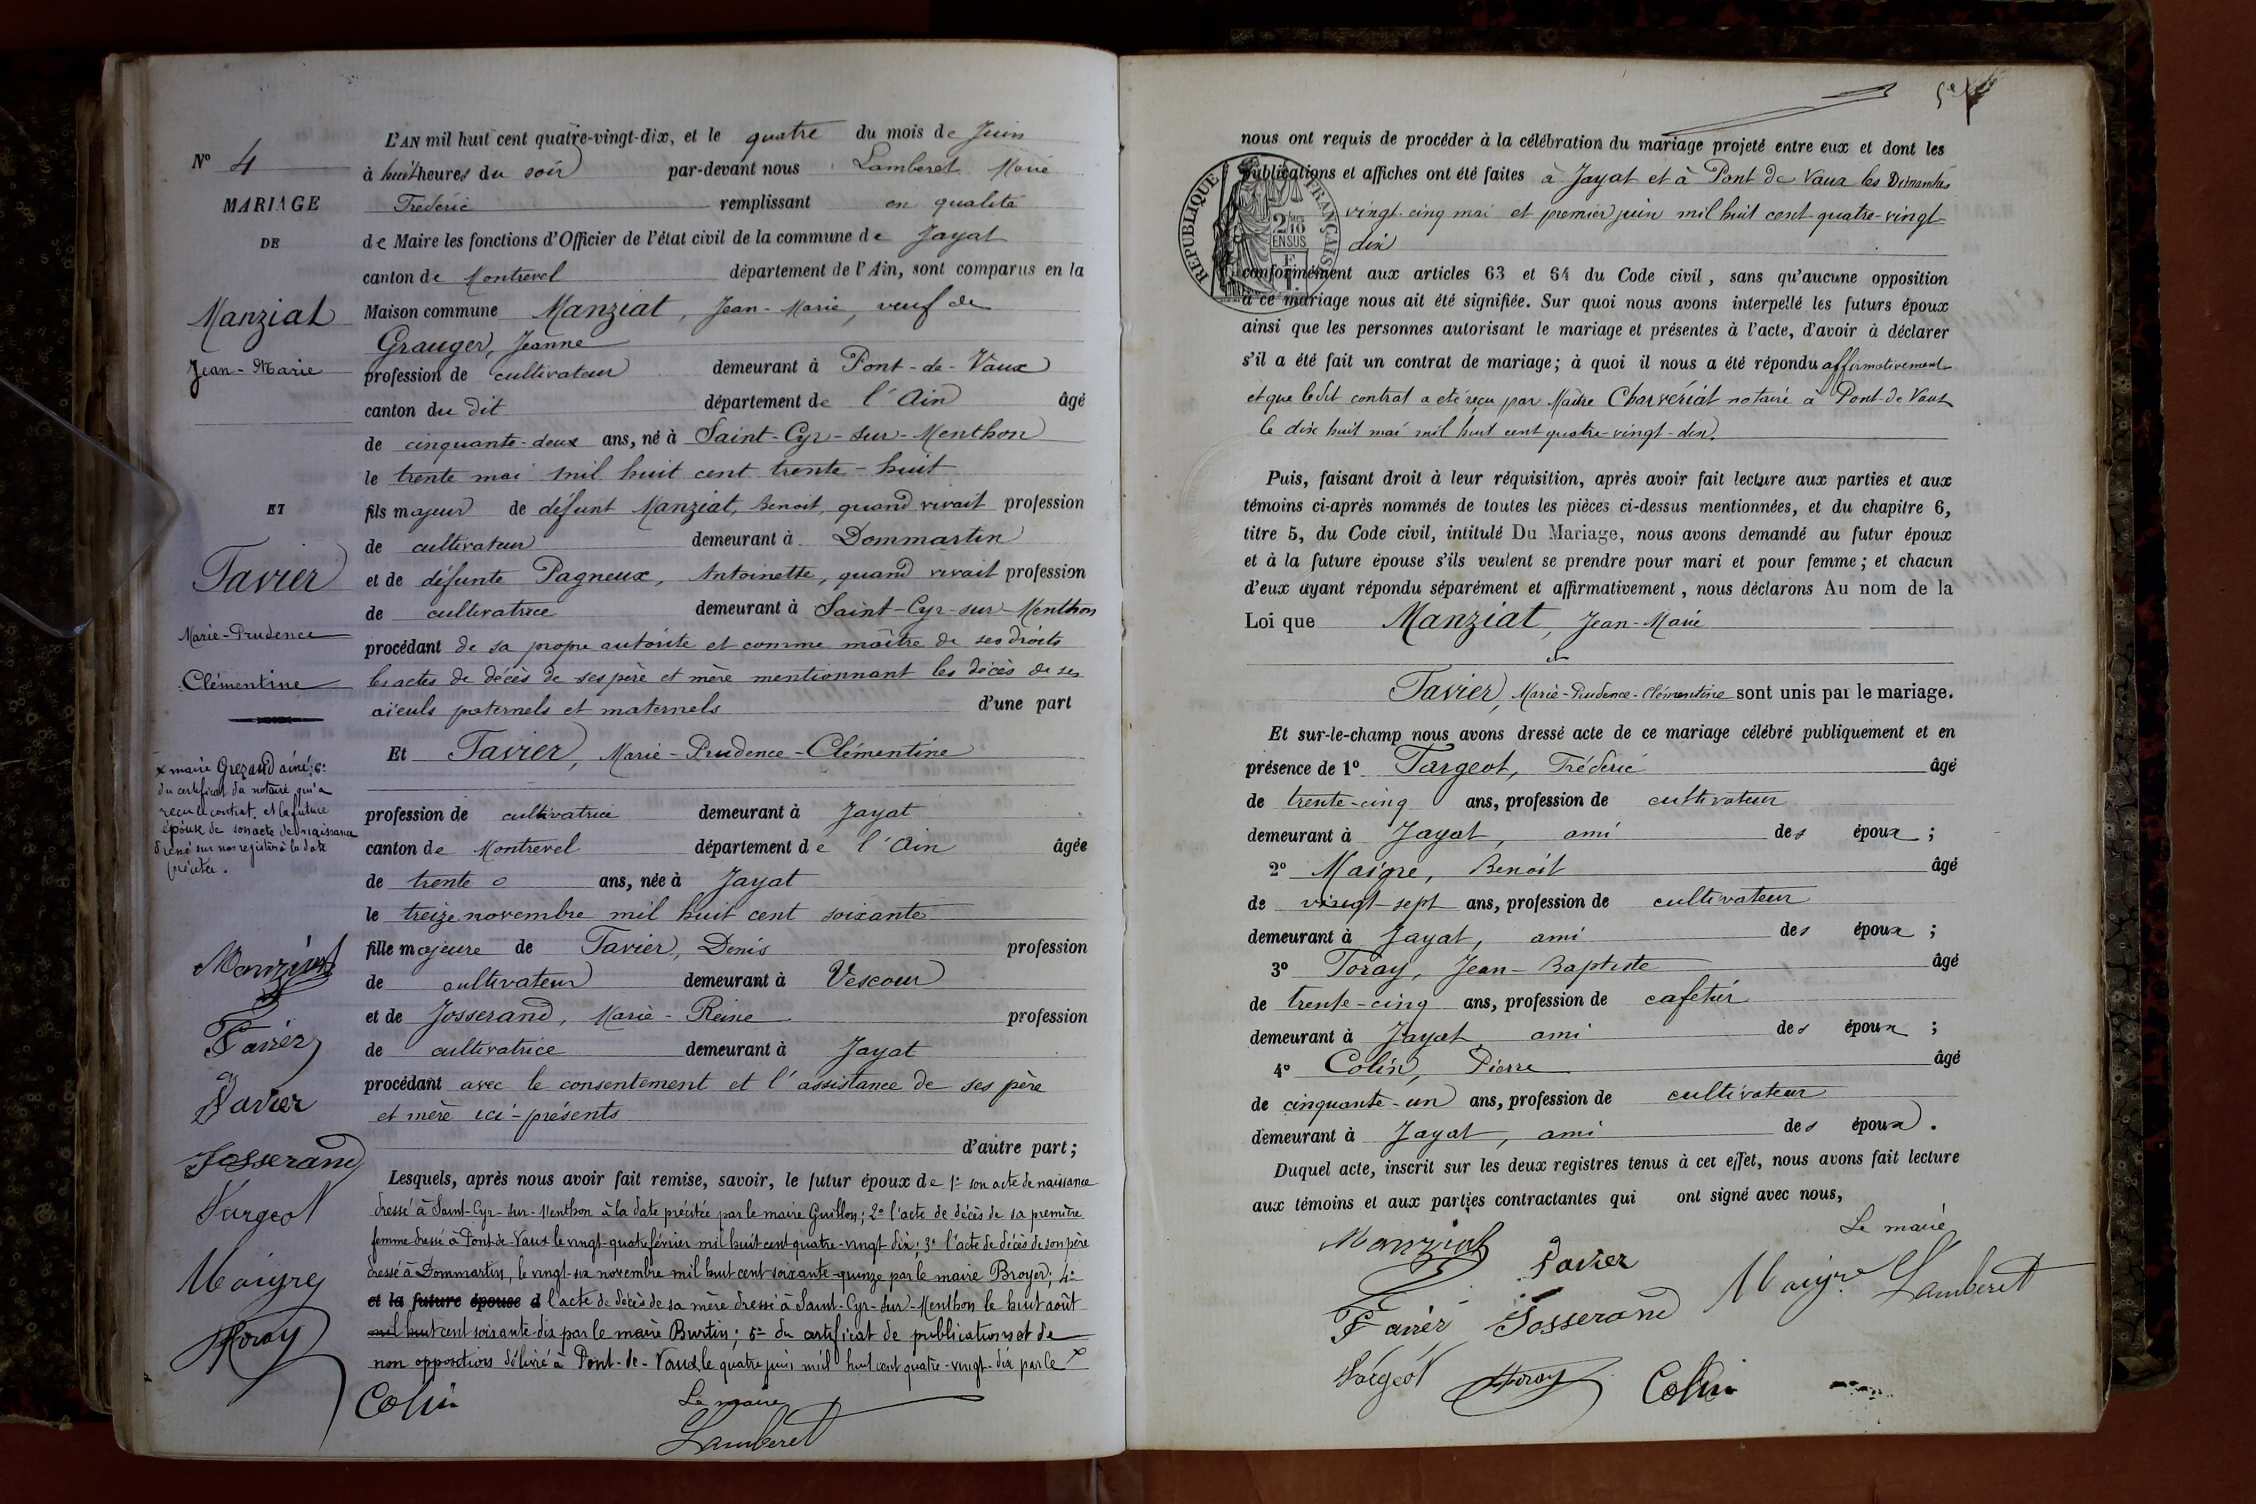 L'AN mil huit cent quatre-vingt-dix, et le quatre du mois de Juin
N° 4
à huit heures du soir par-devant nous Lamberet Marie
MARIAGE
Frédéric remplissant en qualité
DE
de Maire les fonctions d'Officier de l'état civil de la commune de Jayat
canton de Montrevel département de l'Ain, sont comparus en la
Manziat
Maison commune Manziat, Jean-Marie, veuf de
Grauger, Jeanne
Jean-Marie
profession de cultivateur demeurant à Pont-de-Vaux
canton du dit département de l'Ain âgé
de cinquante-deux ans, né à Saint-Cyr-sur-Menthon
le trente mai mil huit cent trente-huit
ET
fils majeur de défunt Manziat, Benoit, quand vivait profession
de cultivateur demeurant à Dommartin
Tavier
et de défunte Pagneux, Antoinette, quand vivait profession
de cultivatrice demeurant à Saint-Cyr-sur-Menthon
Marie-Prudence
procédant de sa propre autorité et comme maître de ses droits
Clémentine
les actes de décès de ses père et mère mentionnant les décès de ses
aïeuls paternels et maternels d'une part
Et Tavier, Marie-Prudence-Clémentine
profession de cultivatrice demeurant à Jayat
canton de Montrevel département de l'Ain âgée
de trente ans, née à Jayat
le treize novembre mil huit cent soixante
fille majeure de Tavier, Denis profession
de cultivateur demeurant à Vescour
et de Josserand, Marie-Reine profession
de cultivatrice demeurant à Jayat
procédant avec le consentement et l'assistance de ses père
et mère ici-présents
d'autre part;
Lesquels, après nous avoir fait remise, savoir, le futur époux de 1° son acte de naissance
dressé à Saint-Cyr-sur-Menthon à la date précitée par le maire Guillon; 2° l'acte de décès de sa première
femme dressé à Pont-de-Vaux le vingt-quatre février mil huit cent quatre-vingt dix; 3° l'acte de décès de son père
dressé à Dommartin, le vingt-six novembre mil huit cent soixante-quinze par le maire Broyer; 4°
et la future épouse d l'acte de décès de sa mère dressé à Saint-Cyr-sur-Menthon le huit août
mil huit cent soixante-dix par le maire Burtin; 5° du certificat de publications et de
non opposition délivré à Pont-de-Vaux le quatre juin mil huit cent quatre-vingt-dix par le x
x maire Grezaud ainé; 6°
du certificat du notaire qui a
reçu le contrat. et la future
épouse de son acte de naissance
dressé sur nos registres à la date
précitée.
Manziat
Tavier
Tavier
Josserand
Targeot
Maigre
Toray
Colin
Le maire
Lamberet
5e
nous ont requis de procéder à la célébration du mariage projeté entre eux et dont les
publications et affiches ont été faites à Jayat et à Pont de Vaux les Dimanches
vingt-cinq mai et premier juin mil huit cent quatre-vingt
dix
RÉPUBLIQUE FRANÇAISE
2/10 EN SUS
conformément aux articles 63 et 64 du Code civil, sans qu'aucune opposition
à ce mariage nous ait été signifiée. Sur quoi nous avons interpellé les futurs époux
ainsi que les personnes autorisant le mariage et présentes à l'acte, d'avoir à déclarer
s'il a été fait un contrat de mariage; à quoi il nous a été répondu affirmativement
et que ledit contrat a été reçu par Maître Charvériat notaire à Pont-de-Vaux
le dix huit mai mil huit cent quatre-vingt-dix.
Puis, faisant droit à leur réquisition, après avoir fait lecture aux parties et aux
témoins ci-après nommés de toutes les pièces ci-dessus mentionnées, et du chapitre 6,
titre 5, du Code civil, intitulé Du Mariage, nous avons demandé au futur époux
et à la future épouse s'ils veulent se prendre pour mari et pour femme; et chacun
d'eux ayant répondu séparément et affirmativement, nous déclarons Au nom de la
Loi que Manziat, Jean-Marie
et
Tavier, Marie-Prudence-Clémentine sont unis par le mariage.
Et sur-le-champ nous avons dressé acte de ce mariage célébré publiquement et en
présence de 1° Targeot, Frédéric âgé
de trente-cinq ans, profession de cultivateur
demeurant à Jayat, ami des époux;
2° Maigre, Benoît âgé
de vingt-sept ans, profession de cultivateur
demeurant à Jayat, ami des époux;
3° Toray, Jean-Baptiste âgé
de trente-cinq ans, profession de cafetier
demeurant à Jayat, ami des époux;
4° Colin, Pierre âgé
de cinquante-un ans, profession de cultivateur
demeurant à Jayat, ami des époux.
Duquel acte, inscrit sur les deux registres tenus à cet effet, nous avons fait lecture
aux témoins et aux parties contractantes qui ont signé avec nous,
Le maire
Manziat Tavier Maigre Lamberet
Tavier Josserand
Targeot Toray Colin